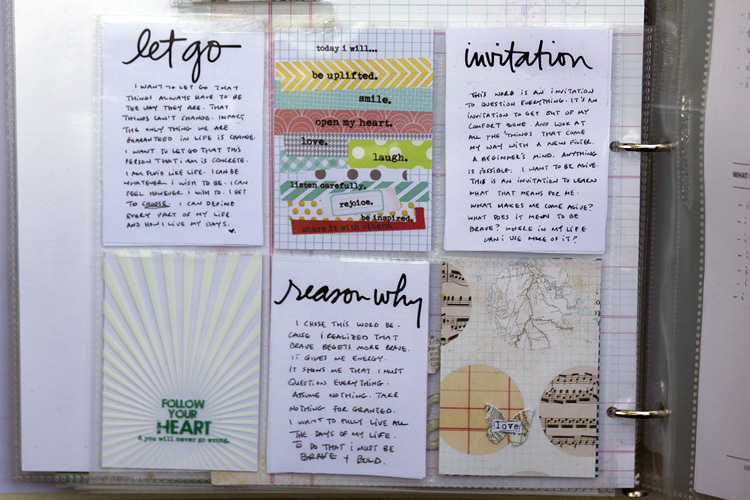 let go
I WANT TO LET GO THAT
THINGS ALWAYS HAVE TO BE
THE WAY THEY ARE. THAT
THINGS CAN'T CHANGE. IN FACT,
THE ONLY THING WE ARE
GUARANTEED IN LIFE IS CHANGE.
I WANT TO LET GO THAT THIS
PERSON THAT I AM IS CONCRETE.
I AM FLUID LIKE LIFE. I CAN BE
WHATEVER I WISH TO BE. I CAN
FEEL HOWEVER I WISH TO. I GET
TO CHOOSE. I CAN DEFINE
EVERY PART OF MY LIFE
AND HOW I LIVE MY DAYS.
today i will...
be uplifted.
smile.
open my heart.
love.
laugh.
listen carefully.
rejoice.
be inspired.
share it with others.
invitation
THIS WORD IS AN INVITATION
TO QUESTION EVERYTHING. IT'S AN
INVITATION TO GET OUT OF MY
COMFORT ZONE AND LOOK AT
ALL THE THINGS THAT COME
MY WAY WITH A NEW FILTER.
A BEGINNER'S MIND. ANYTHING
IS POSSIBLE. I WANT TO BE ALIVE.
THIS IS AN INVITATION TO LEARN
WHAT THAT MEANS FOR ME.
WHAT MAKES ME COME ALIVE?
WHAT DOES IT MEAN TO BE
BRAVE? WHERE IN MY LIFE
CAN I USE MORE OF IT?
FOLLOW
YOUR
HEART
& you will never go wrong.
reason why
I CHOSE THIS WORD BE-
CAUSE I REALIZED THAT
BRAVE BEGETS MORE BRAVE.
IT GIVES ME ENERGY.
IT SHOWS ME THAT I MUST
QUESTION EVERYTHING.
ASSUME NOTHING. TAKE
NOTHING FOR GRANTED.
I WANT TO FULLY LIVE ALL
THE DAYS OF MY LIFE.
TO DO THAT I MUST BE
BRAVE + BOLD.
love
WHAT